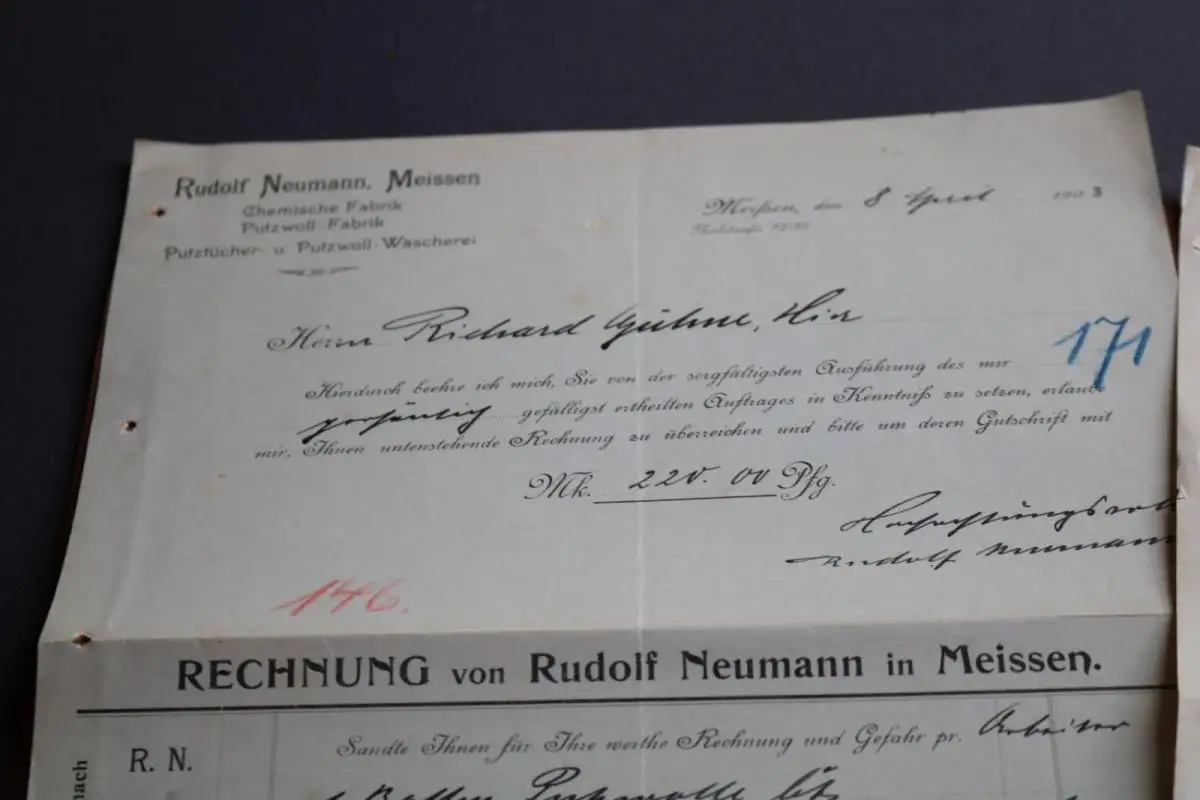 Rudolf Neumann, Meissen
Chemische Fabrik
Putzwoll-Fabrik
Putztücher- u. Putzwoll-Wäscherei
Meißen, den 8 April 1903
Herrn Richard Gühne, Hier
171
Hierdurch beehre ich mich, Sie von der sorgfältigsten Ausführung des mir
persönlich gefälligst ertheilten Auftrages in Kenntniß zu setzen, erlaube
mir, Ihnen untenstehende Rechnung zu überreichen und bitte um deren Gutschrift mit
Mk. 220.00 Pfg.
Hochachtungsvoll
Rudolf Neumann
146.
RECHNUNG von Rudolf Neumann in Meissen.
Sandte Ihnen für Ihre werthe Rechnung und Gefahr pr. Arbeiter
R. N.
1 Ballen Putzwolle
nach